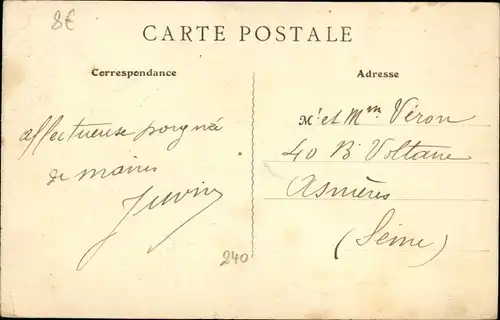 8€
CARTE POSTALE
Correspondance
Adresse
affectueuse poignée
de mains
Juvin
Mr et Mme Véron
40 Bd Voltaire
Asnières
(Seine)
240